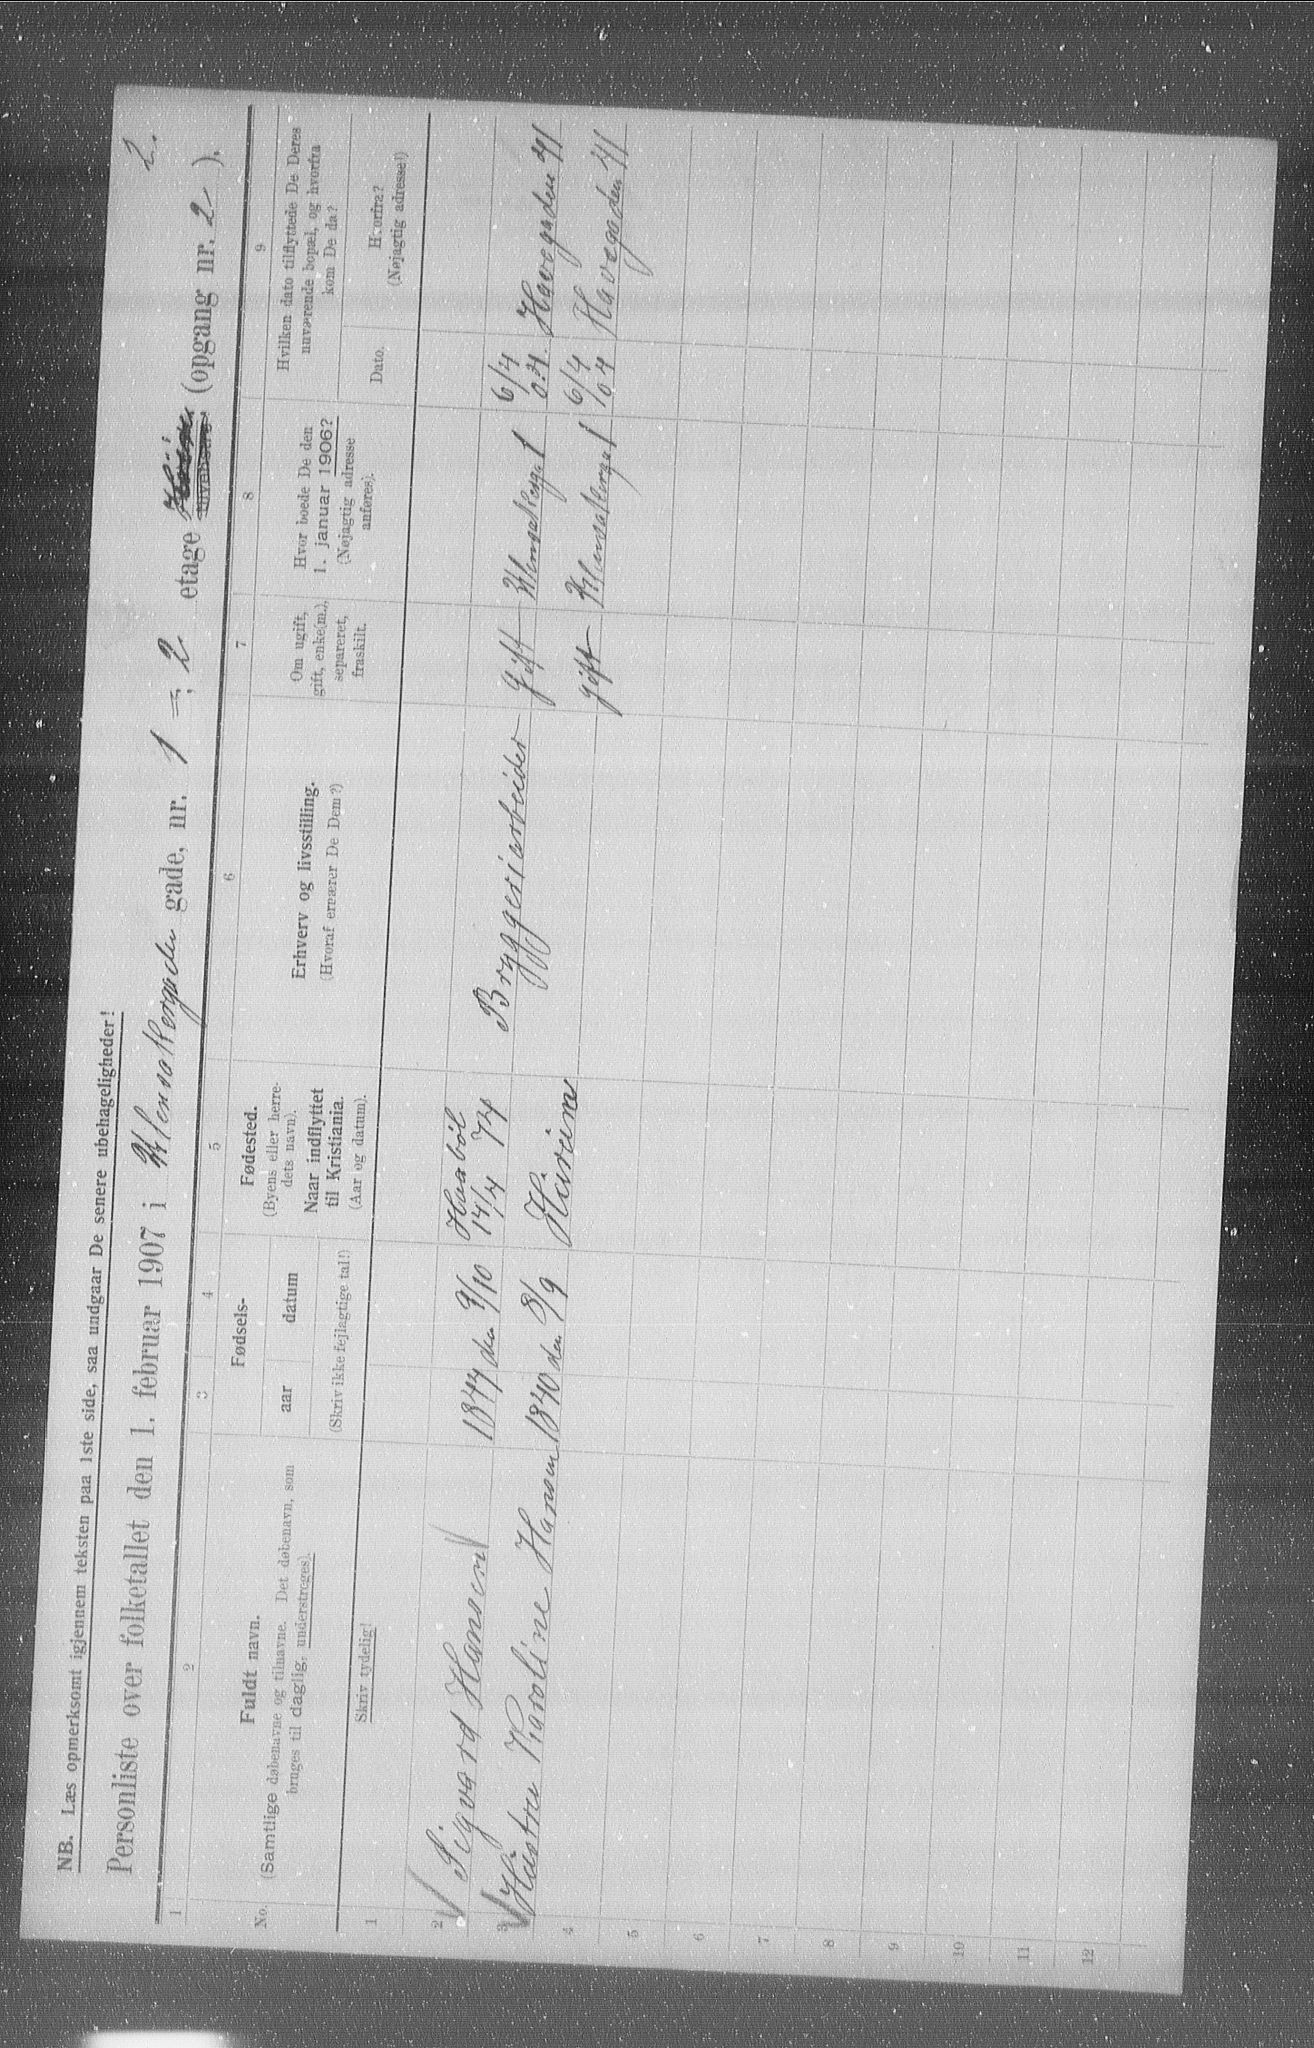 2.
NB. Læs opmerksomt igjennem teksten paa 1ste side, saa undgaar De senere ubehageligheder!
Personliste over folketallet den 1. februar 1907 i gade, nr. 1 – 2 etage (opgang nr. 2 ).
1 2 3 4 5 6 7 8 9
No.
Fuldt navn.
(Samtlige døbenavne og tilnavne. Det døbenavn, som
bruges til daglig, understreges).
Skriv tydelig!
Fødsels-
aar datum
(Skriv ikke fejlagtige tal!)
Fødested.
(Byens eller herre-
dets navn).
Naar indflyttet
til Kristiania.
(Aar og datum).
Erhverv og livsstilling.
(Hvoraf ernærer De Dem?)
Om ugift,
gift, enke(m.),
separeret,
fraskilt.
Hvor boede De den
1. januar 1906?
(Nøjagtig adresse
anføres).
Hvilken dato tilflyttede De Deres
nuværende bopæl, og hvorfra
kom De da?
Dato.
Hvorfra?
(Nøjagtig adresse!)
1
2 Sigvard Hansen 1844 den 9/10 Haabøl 14/4 74 Bryggeriarbeider Gift 6/4 04. Havegaden 41
3 Hustru Karoline Hansen 1840 den 8/9 gift 6/4 04 Havegaden 41
4
5
6
7
8
9
10
11
12